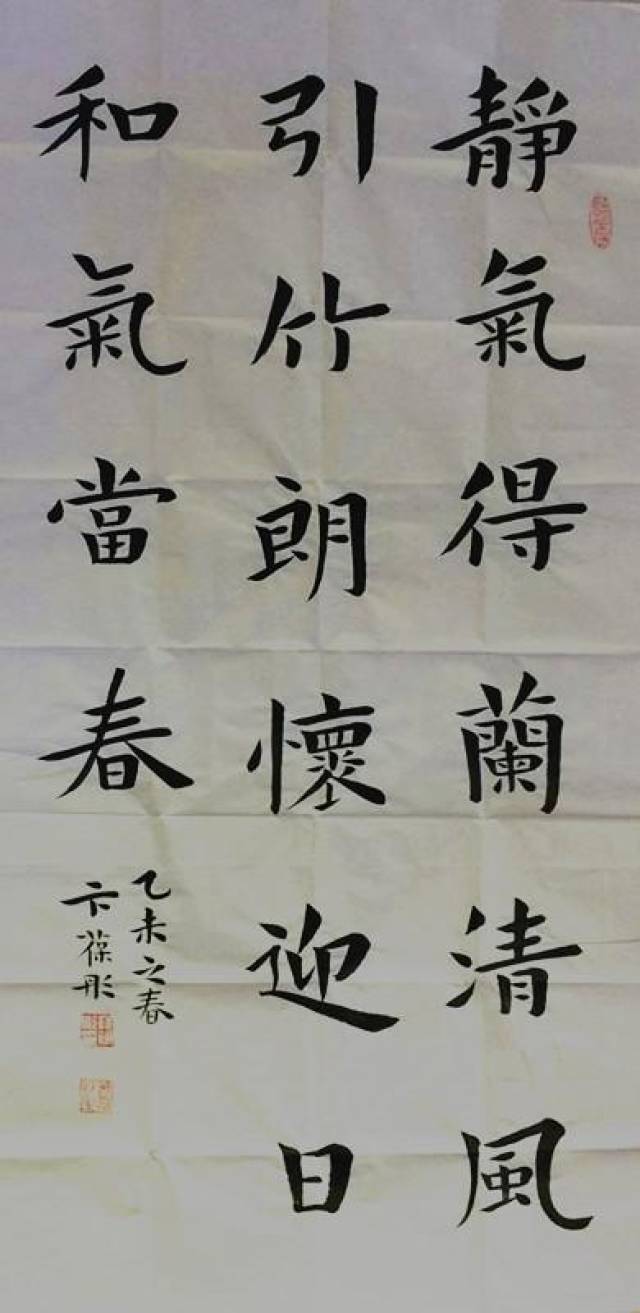 靜氣得蘭清風
引竹朗懷迎日
和氣當春
乙未之春
卞葆彤